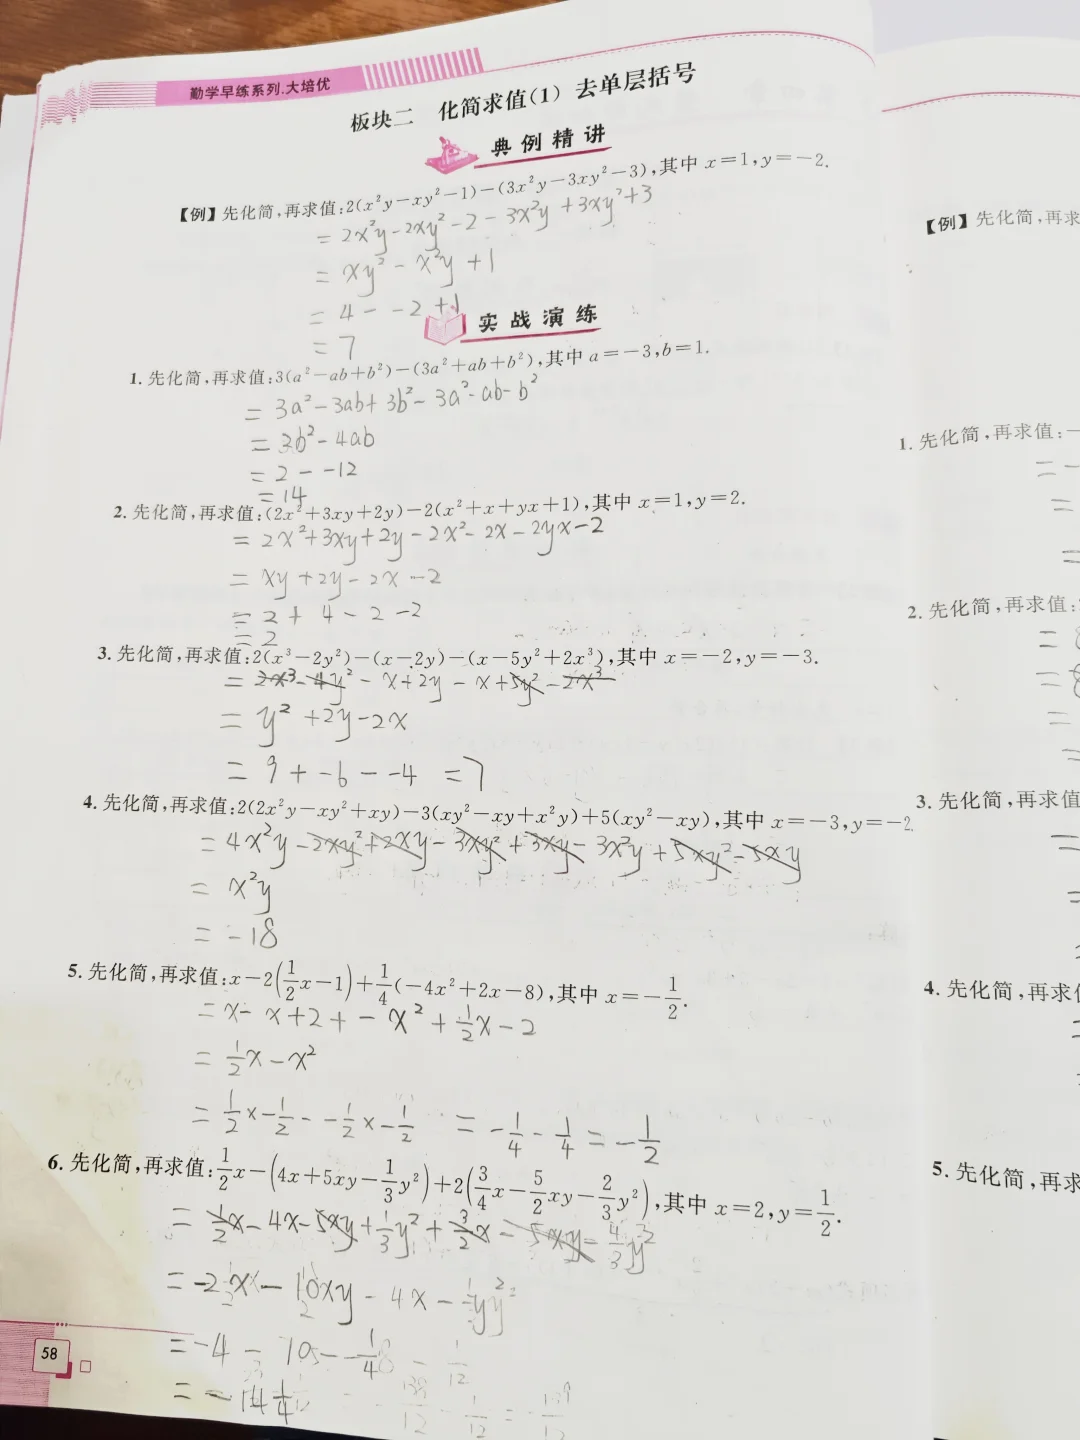 勤学早练系列.大培优
板块二 化简求值(1) 去单层括号
典例精讲
【例】先化简,再求值:2(x²y-xy²-1)-(3x²y-3xy²-3),其中 x=1,y=-2.
= 2x²y-2xy²-2-3x²y+3xy²+3
= xy²-x²y+1
= 4--2+1
= 7
实战演练
1. 先化简,再求值:3(a²-ab+b²)-(3a²+ab+b²),其中 a=-3,b=1.
= 3a²-3ab+3b²-3a²-ab-b²
= 2b²-4ab
= 2--12
= 14
2. 先化简,再求值:(2x²+3xy+2y)-2(x²+x+yx+1),其中 x=1,y=2.
= 2x²+3xy+2y-2x²-2x-2yx-2
= xy+2y-2x-2
= 2+4-2-2
= 2
3. 先化简,再求值:2(x³-2y²)-(x-2y)-(x-5y²+2x³),其中 x=-2,y=-3.
= 2x³-4y²-x+2y-x+5y²-2x³
= y²+2y-2x
= 9+-6--4 =7
4. 先化简,再求值:2(2x²y-xy²+xy)-3(xy²-xy+x²y)+5(xy²-xy),其中 x=-3,y=-2.
= 4x²y-2xy²+2xy-3xy²+3xy-3x²y+5xy²-5xy
= x²y
= -18
5. 先化简,再求值:x-2(1/2x-1)+1/4(-4x²+2x-8),其中 x=-1/2.
= x-x+2+-x²+1/2x-2
= 1/2x-x²
= 1/2×-1/2--1/2×-1/2 = -1/4-1/4=-1/2
6. 先化简,再求值:1/2x-(4x+5xy-1/3y²)+2(3/4x-5/2xy-2/3y²),其中 x=2,y=1/2.
= 1/2x-4x-5xy+1/3y²+3/2x-5xy-4/3y²
= -2x-10xy-y²
= -4-10--1/4
= -14 1/4
58
【例】先化简,再求
1. 先化简,再求值:-
2. 先化简,再求值:
3. 先化简,再求值
4. 先化简,再求
5. 先化简,再求